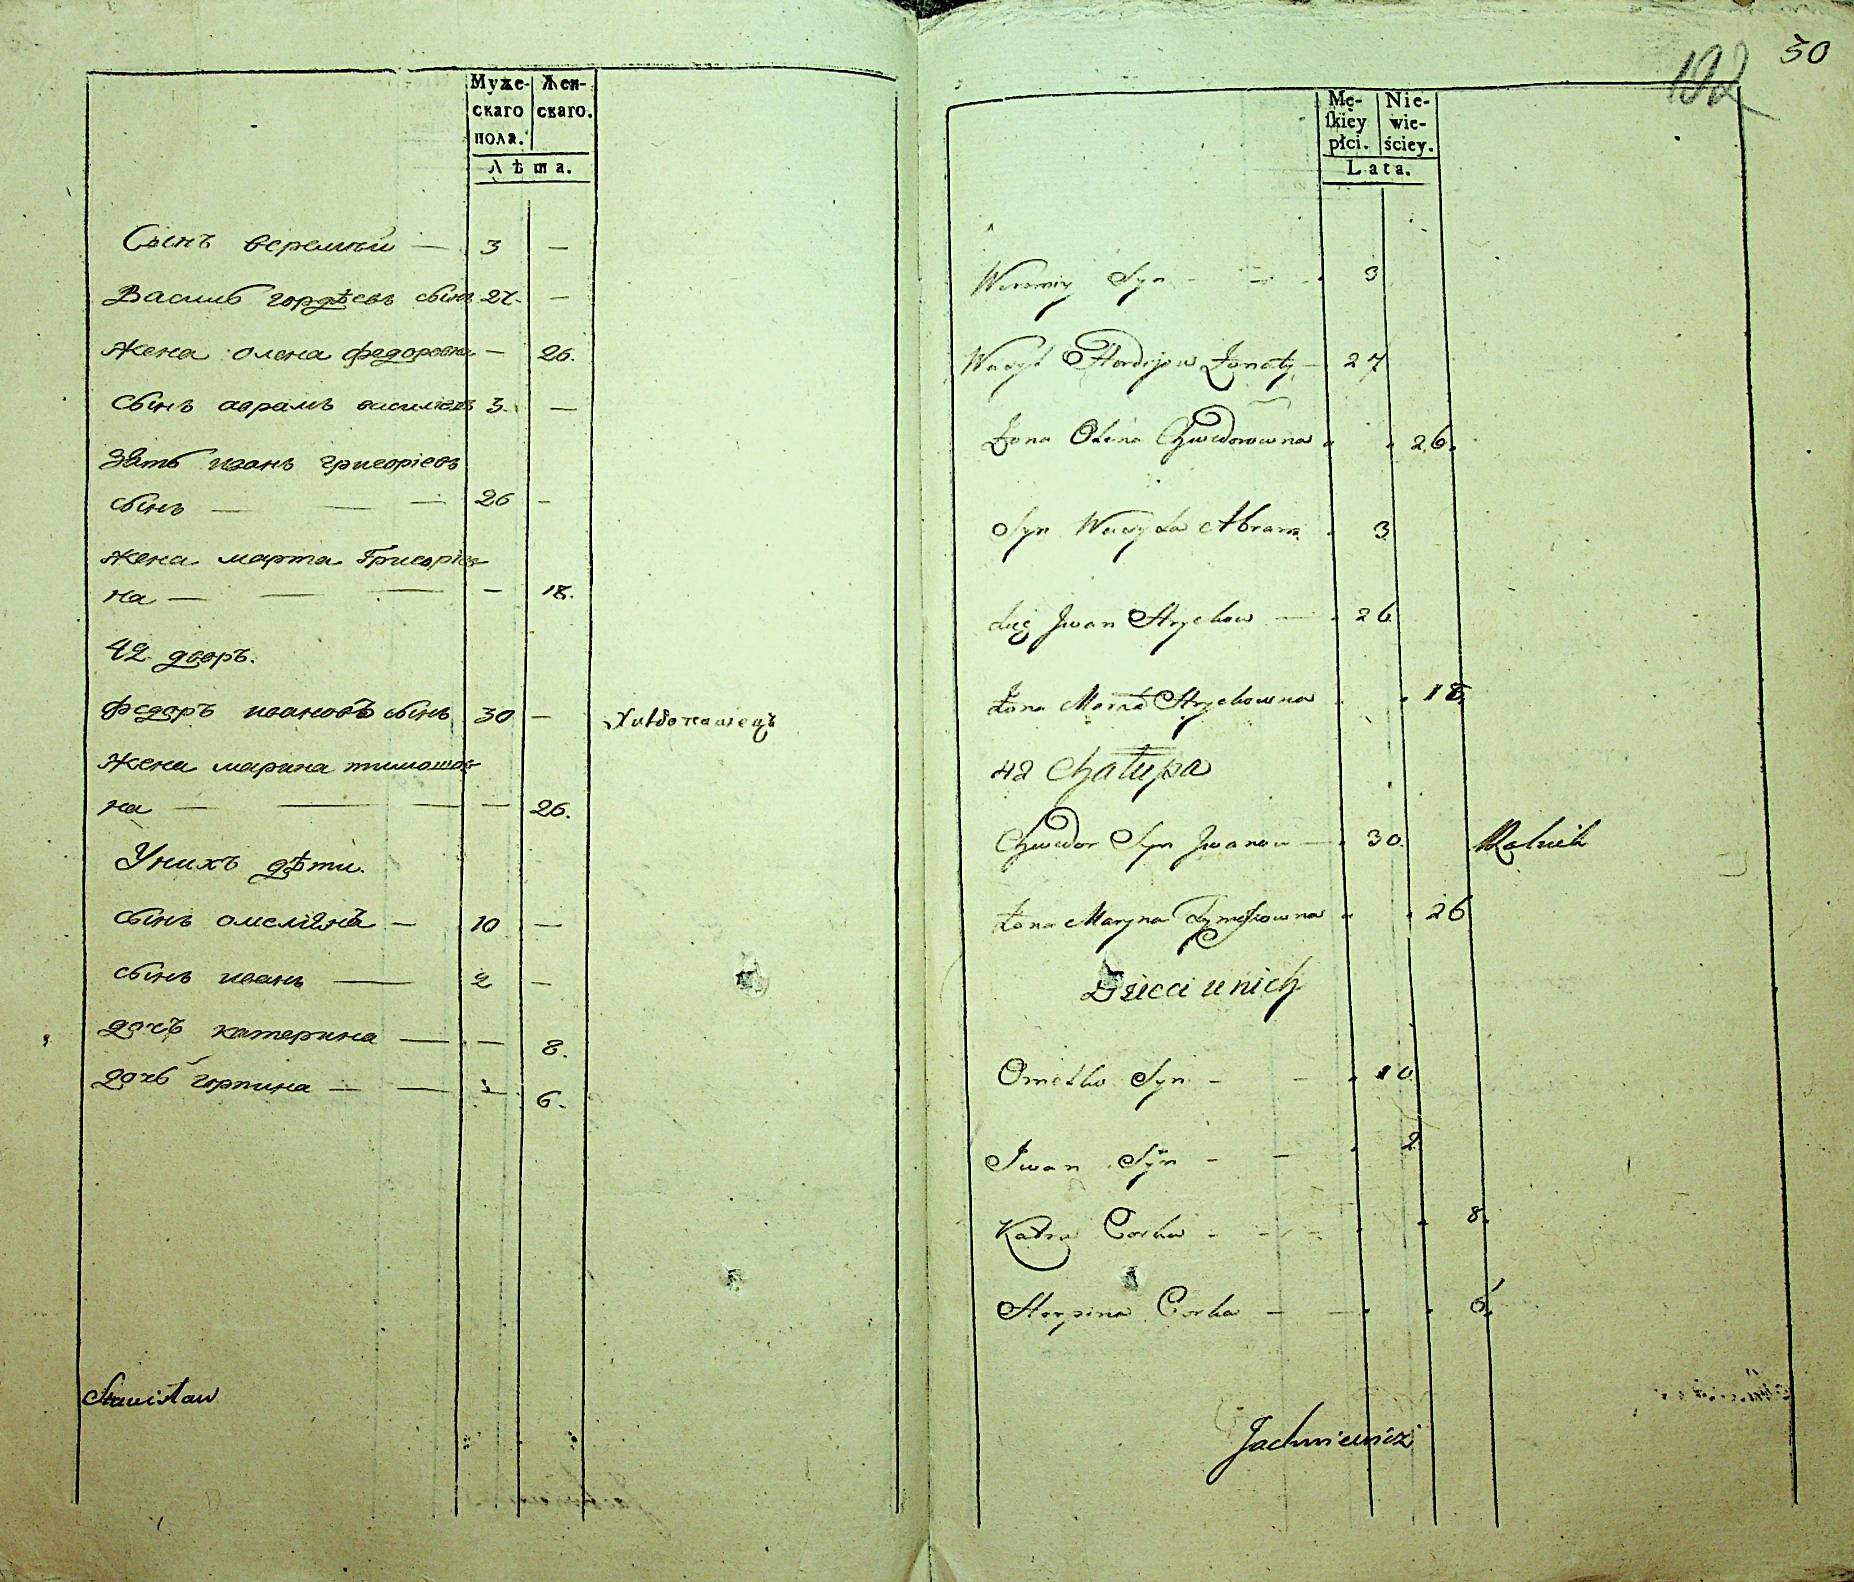 Муже-
скаго
пола.
Жен-
скаго.
Лѣта.
Сынъ веремѣй — 3 —
Василь гордѣевъ сынъ 27. —
Жена олена федоровна — 26.
сынъ аврамъ василіевъ 3. —
Зять иванъ григоріевъ
сынъ — — — 26 —
Жена марта Григоріев
на — — — — 18.
42 дворъ.
федоръ ивановъ сынъ 30 — Хлѣбопашецъ
Жена марина тимошов
на — — — — 26.
У нихъ дѣти.
сынъ омелiянъ — 10 —
сынъ иванъ — 2 —
дочъ катерина — — 8.
дочь горпина — — — 6.
Stanisław
50
102
Mę-
ſkiey
płci.
Nie-
wie-
ściey.
Lata.
Weremiy Syn - - - 3
Wasyl Hordijow Żonaty — 27
Żona Olena Chwedorowna " " 26.
Syn Wasyla Abram " 3
Zięć Jwan Hrychow — " 26
Żona Marta Hrychowna " 18.
42 Chałupa
Chwedor Syn Jwanow — 30. Rolnik
Żona Maryna Tymoszowna " " 26
Dzieci u nich
Omelko Syn - - " 10
Jwan Syn - - " 2
Katra Corka - - - " " 8.
Horpina Corka — — " " 6.
Jachniewicz